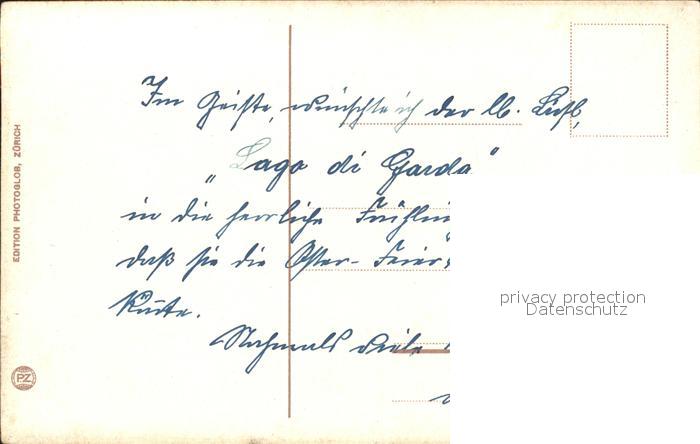 Im Geiste, wünschte ich der lb.
„Lago di Garda"
in die herrliche Frühlin
daß sie die Oster-Feier
Nochmals viele
EDITION PHOTOGLOB, ZÜRICH
PZ
privacy protection
Datenschutz